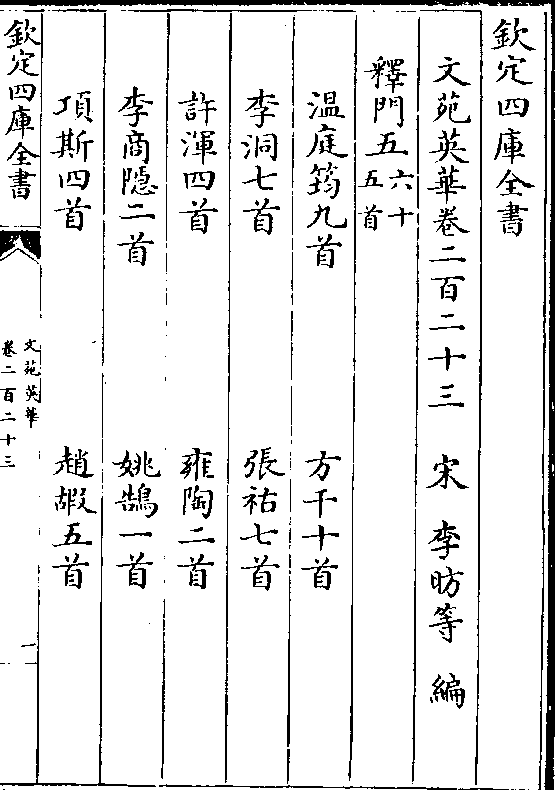 欽定四庫全書
文苑英華卷二百二十三　宋　李昉等　編
釋門五六十五首
温庭筠九首　方干十首
李洞七首　張祜七首
許渾四首　雍陶二首
李商隱二首　姚鵠一首
項斯四首　趙嘏五首
欽定四庫全書
文苑英華
卷二百二十三
一